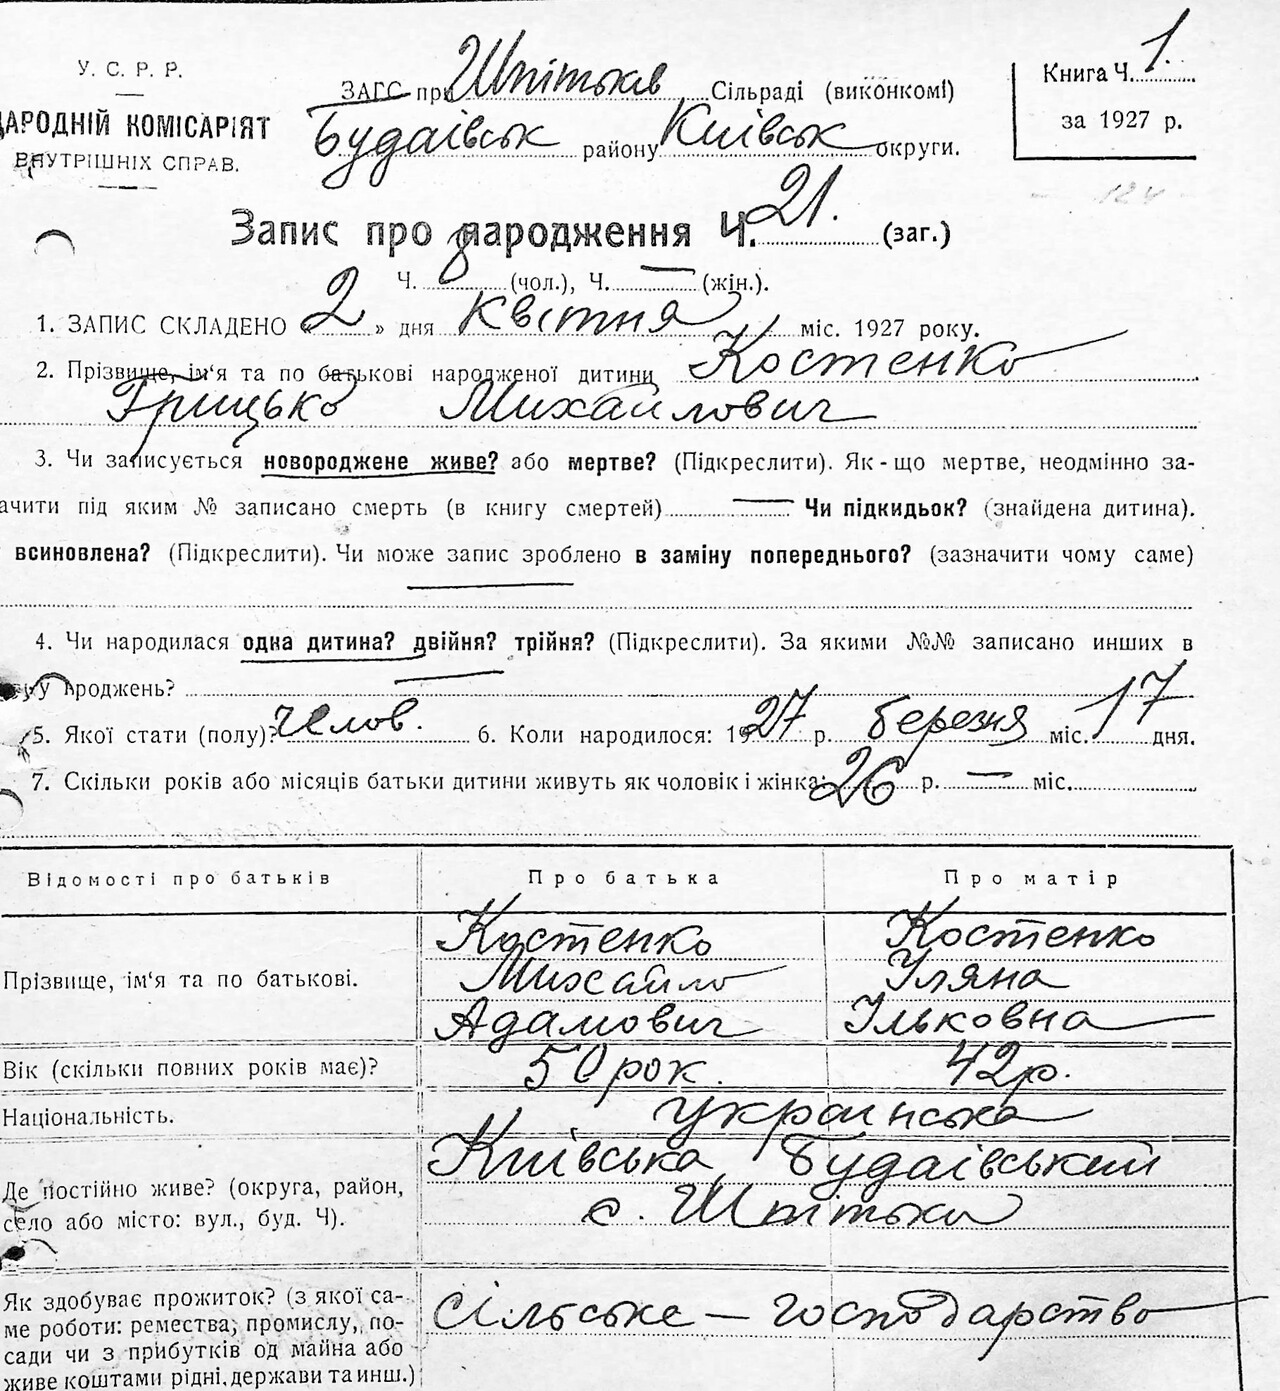 У. С. Р. Р.
НАРОДНІЙ КОМІСАРІЯТ
ВНУТРІШНІХ СПРАВ.
ЗАГС при Шпітьків Сільраді (виконкомі)
Будаівськ району Київськ округи.
Книга Ч. 1.
за 1927 р.
124
Запис про народження Ч. 21. (заг.)
Ч. 8 (чол.), Ч. — (жін.).
1. ЗАПИС СКЛАДЕНО « 2 » дня Квітня міс. 1927 року.
2. Прізвище, ім‘я та по батькові народженої дитини Костенко
Грицько Михайлович
3. Чи записується новороджене живе? або мертве? (Підкреслити). Як-що мертве, неодмінно за-
ачити під яким № записано смерть (в книгу смертей) — Чи підкидьок? (знайдена дитина).
всиновлена? (Підкреслити). Чи може запис зроблено в заміну попереднього? (зазначити чому саме)
—
4. Чи народилася одна дитина? двійня? трійня? (Підкреслити). За якими №№ записано инших в
у нроджень? —
5. Якої стати (полу)? челов. 6. Коли народилося: 1927 р. березня міс. 17 дня.
7. Скільки років або місяців батьки дитини живуть як чоловік і жінка: 26 р. — міс.
Відомості про батьків Про батька Про матір
Прізвище, ім‘я та по батькові.
Костенко Костенко
Михайло Уляна
Адамович Ільковна
Вік (скільки повних років має)? 50 рок. 42 р.
Національність. українська
Де постійно живе? (округа, район,
село або місто: вул., буд. Ч).
Київська Будаівський
с. Шпітьки
Як здобуває прожиток? (з якої са-
ме роботи: ремества, промислу, по-
сади чи з прибутків од майна або
живе коштами рідні, держави та инш.)
сільське — господарство